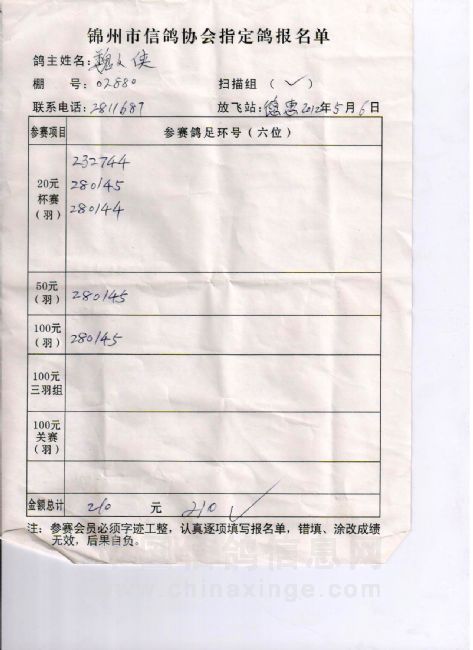 锦州市信鸽协会指定鸽报名单
鸽主姓名:魏人侠
棚 号:02880 扫描组(✓)
联系电话:2811687 放飞站:德惠2012年5月6日
参赛项目 参赛鸽足环号(六位)
20元
杯赛
(羽)
232744
280145
280144
50元
(羽)
280145
100元
(羽)
280145
100元
三羽组
100元
关赛
(羽)
金额总计 210 元 210 ✓
注:参赛会员必须字迹工整,认真逐项填写报名单,错填、涂改成绩
无效,后果自负。
中国信鸽信息网
www.chinaxinge.com